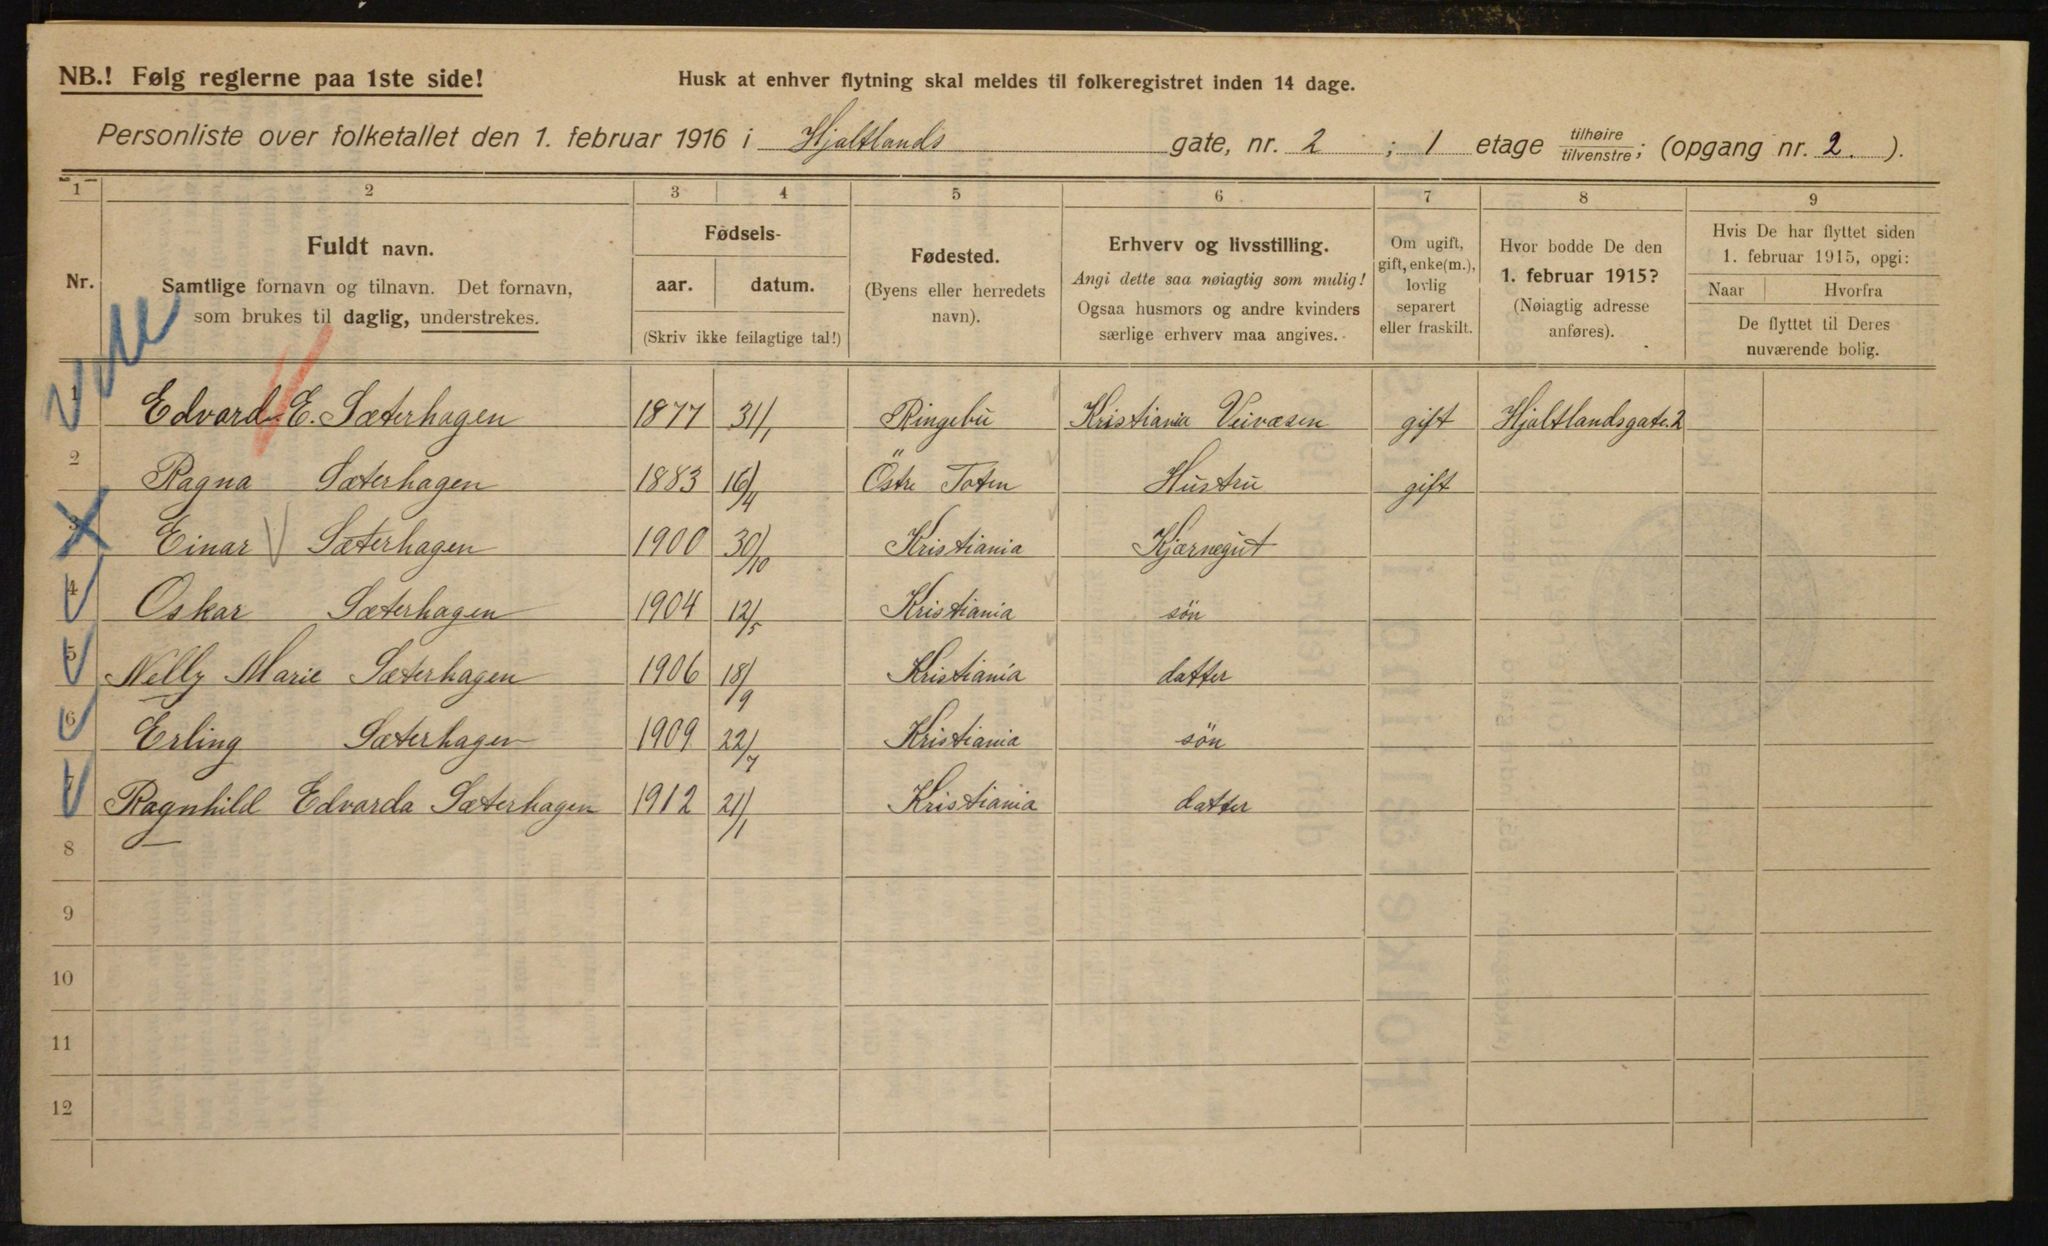 NB.! Følg reglerne paa 1ste side!
Husk at enhver flytning skal meldes til folkeregistret inden 14 dage.
Personliste over folketallet den 1. februar 1916 i Hjaltlands gate, nr. 2 ; 1 etage tilhøire/tilvenstre; (opgang nr. 2. ).
1 2 3 4 5 6 7 8 9
Nr.
Fuldt navn.
Samtlige fornavn og tilnavn. Det fornavn,
som brukes til daglig, understrekes.
Fødsels-
aar. datum.
(Skriv ikke feilagtige tal!)
Fødested.
(Byens eller herredets
navn).
Erhverv og livsstilling.
Angi dette saa nøiagtig som mulig!
Ogsaa husmors og andre kvinders
særlige erhverv maa angives.
Om ugift,
gift, enke(m.),
lovlig
separert
eller fraskilt.
Hvor bodde De den
1. februar 1915?
(Nøiagtig adresse
anføres).
Hvis De har flyttet siden
1. februar 1915, opgi:
Naar Hvorfra
De flyttet til Deres
nuværende bolig.
1 Edvard E. Sæterhagen 1877 31/1 Ringebu Kristiania Veivæsen gift Hjaltlandsgate. 2
2 Ragna Sæterhagen 1883 16/4 Östre Toten Hustru gift
3 Einar Sæterhagen 1900 30/10 Kristiania Kjørnegut
4 Oskar Sæterhagen 1904 12/5 Kristiania søn
5 Nelly Marie Sæterhagen 1906 18/9 Kristiania datter
6 Erling Sæterhagen 1909 22/7 Kristiania søn
7 Ragnhild Edvarda Sæterhagen 1912 21/1 Kristiania datter
8
9
10
11
12